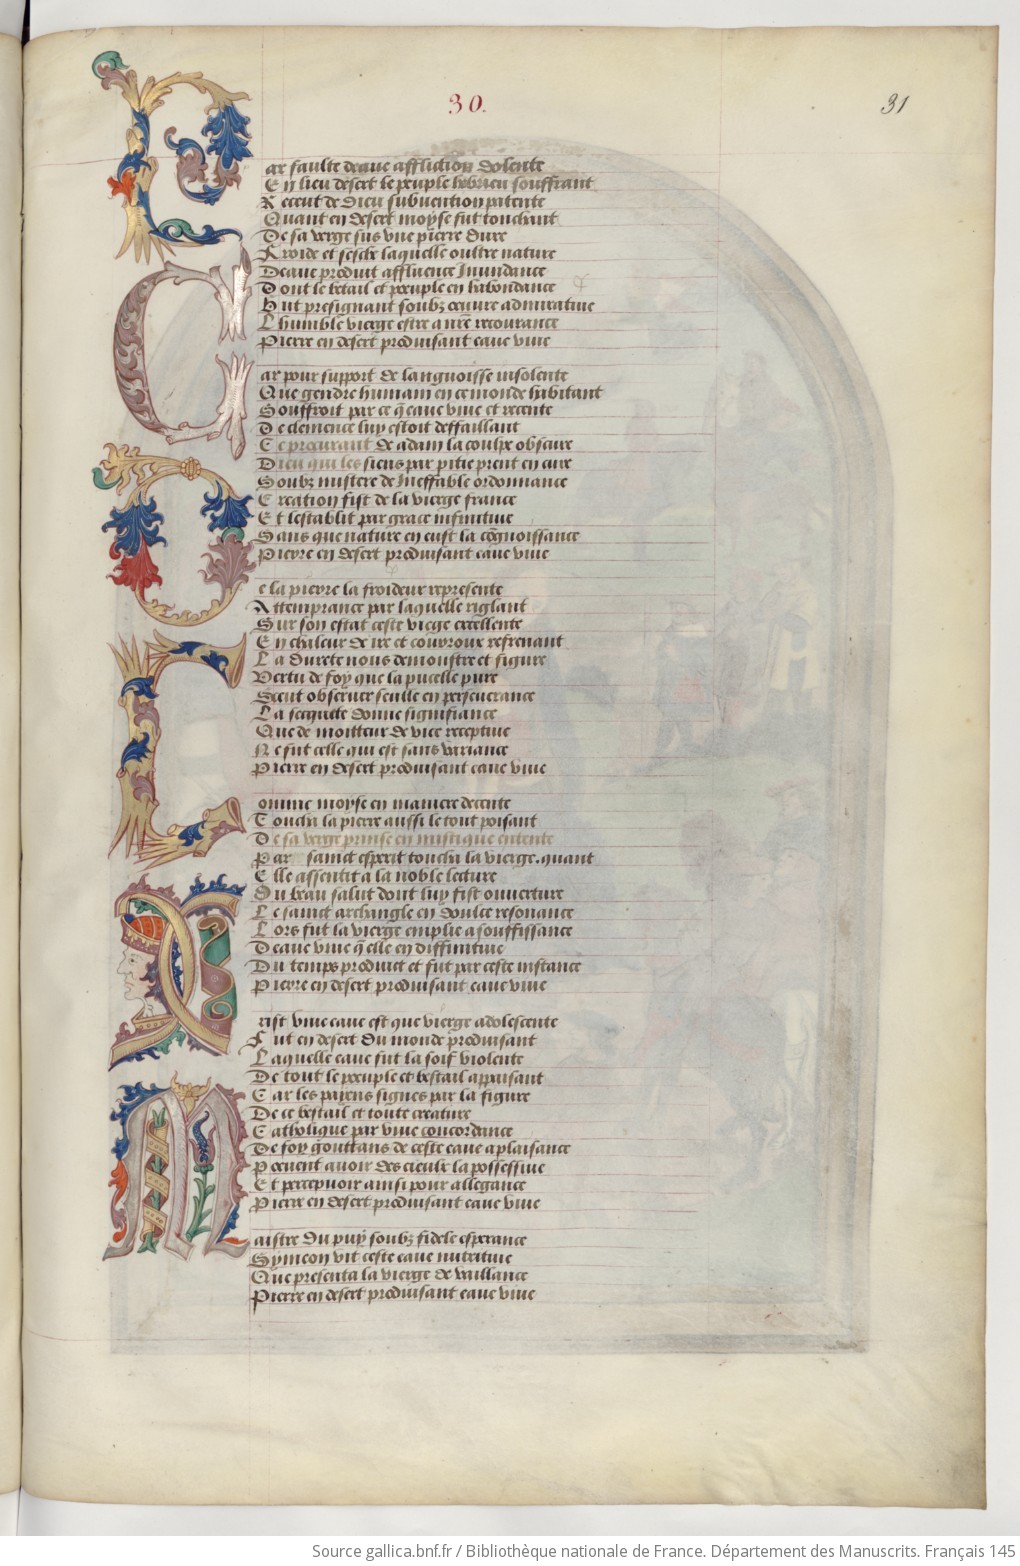 30.
31
Par faulte deaue affliction dolente
En lieu desert le peuple hebrieu souffrant
Receut de dieu subuention patente
Quant en desert moyse fut touchant
De sa verge sus vne pierre dure
Froide et seche laquelle oultre nature
Deaue produit affluence Inundance
Dont le betail et peuple en habondance
But presignant soubz oeuure admiratiue
Lhumble vierge estre a nr̃e recourance
Pierre en desert produisant eaue viue
Car pour support de languoisse insolente
Que gendre humain en ce monde habitant
Souffroit par ce q̃ eaue viue et recente
De clemence luy estoit deffaillant
Ce procurant de adam la coulpe obscure
Dieu qui les siens par pitie prent en cure
Soubz mistere de Ineffable ordonnance
Creation fist de la vierge france
Et lestablit par grace infinitiue
Sans que nature en eust la cõgnoissance
Pierre en desert produisant eaue viue
De la pierre la froideur represente
Attemprance par laquelle riglant
Sur son estat ceste vierge excellente
En chaleur de ire et couroux refrenant
La durete nous demonstre et figure
Vertu de foy que la pucelle pure
Sceut obseruer seulle en perseuerance
La seqcete donne signifiance
Que de moitteur de vice receptiue
Ne fut celle qui est sans variance
Pierre en desert produisant eaue viue
Comme moyse en maniere decente
Toucha la pierre aussi le tout poisant
De sa verge prinse en mistique entente
Par sainct esperit toucha la vierge. quant
Elle assentit a la noble lecture
Du beau salut dont luy fist ouuerture
Le sainct archangle en doulce resonance
Lors fut la vierge emplie a souffissance
Deaue viue q̃ elle en diffinitiue
Du temps produict et fut par ceste instance
Pierre en desert produisant eaue viue
Crist viue eaue est que vierge adolescente
Fut en desert du monde produisant
Laquelle eaue fut la soif violente
De tout le peuple et bestail appaisant
Car les payens signes par la figure
De ce bestail et toute creature
Catholique par viue concordance
De foy gouttans de ceste eaue a plaisance
Peeuent auoir des cieulx la possessiue
Et percepuoir ainsi pour allegance
Pierre en desert produisant eaue viue
Maistre du puy soubz fidele esperance
Symeon vit ceste eaue nutritiue
Que presenta la vierge de vaillance
Pierre en desert produisant eaue viue
Source gallica.bnf.fr / Bibliothèque nationale de France. Département des Manuscrits. Français 145